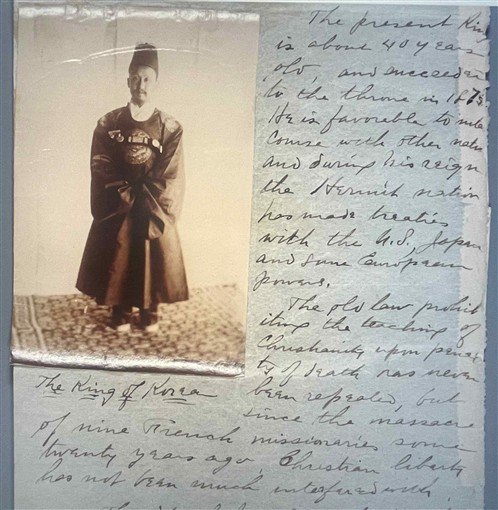 The present King
is about 40 years
old, and succeeded
to the throne in 1873.
He is favorable to inter
course with other nations
and during his reign
the Hermit nation
has made treaties
with the U.S., Japan
and some European
powers.
The old law prohib
iting the teaching of
Christianity upon penal
ty of death has never
been repealed, but
The King of Korea
since the massacre
of nine French missionaries some
twenty years ago, Christian liberty
has not been much interfered with.